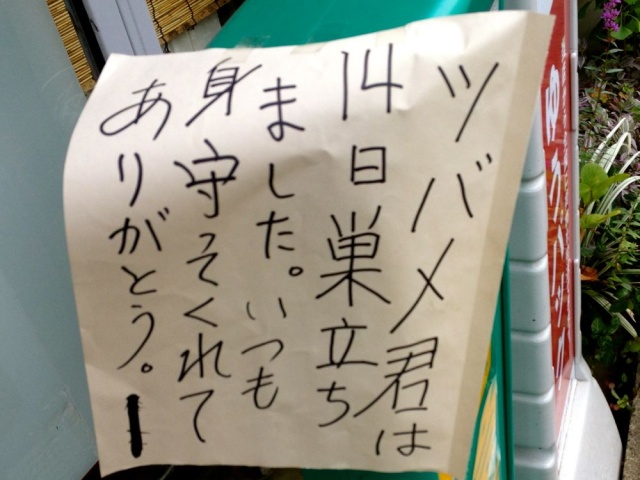 ツバメ君は
14日巣立ち
ました。いつも
身守ってくれて
ありがとう。
ゆうパック